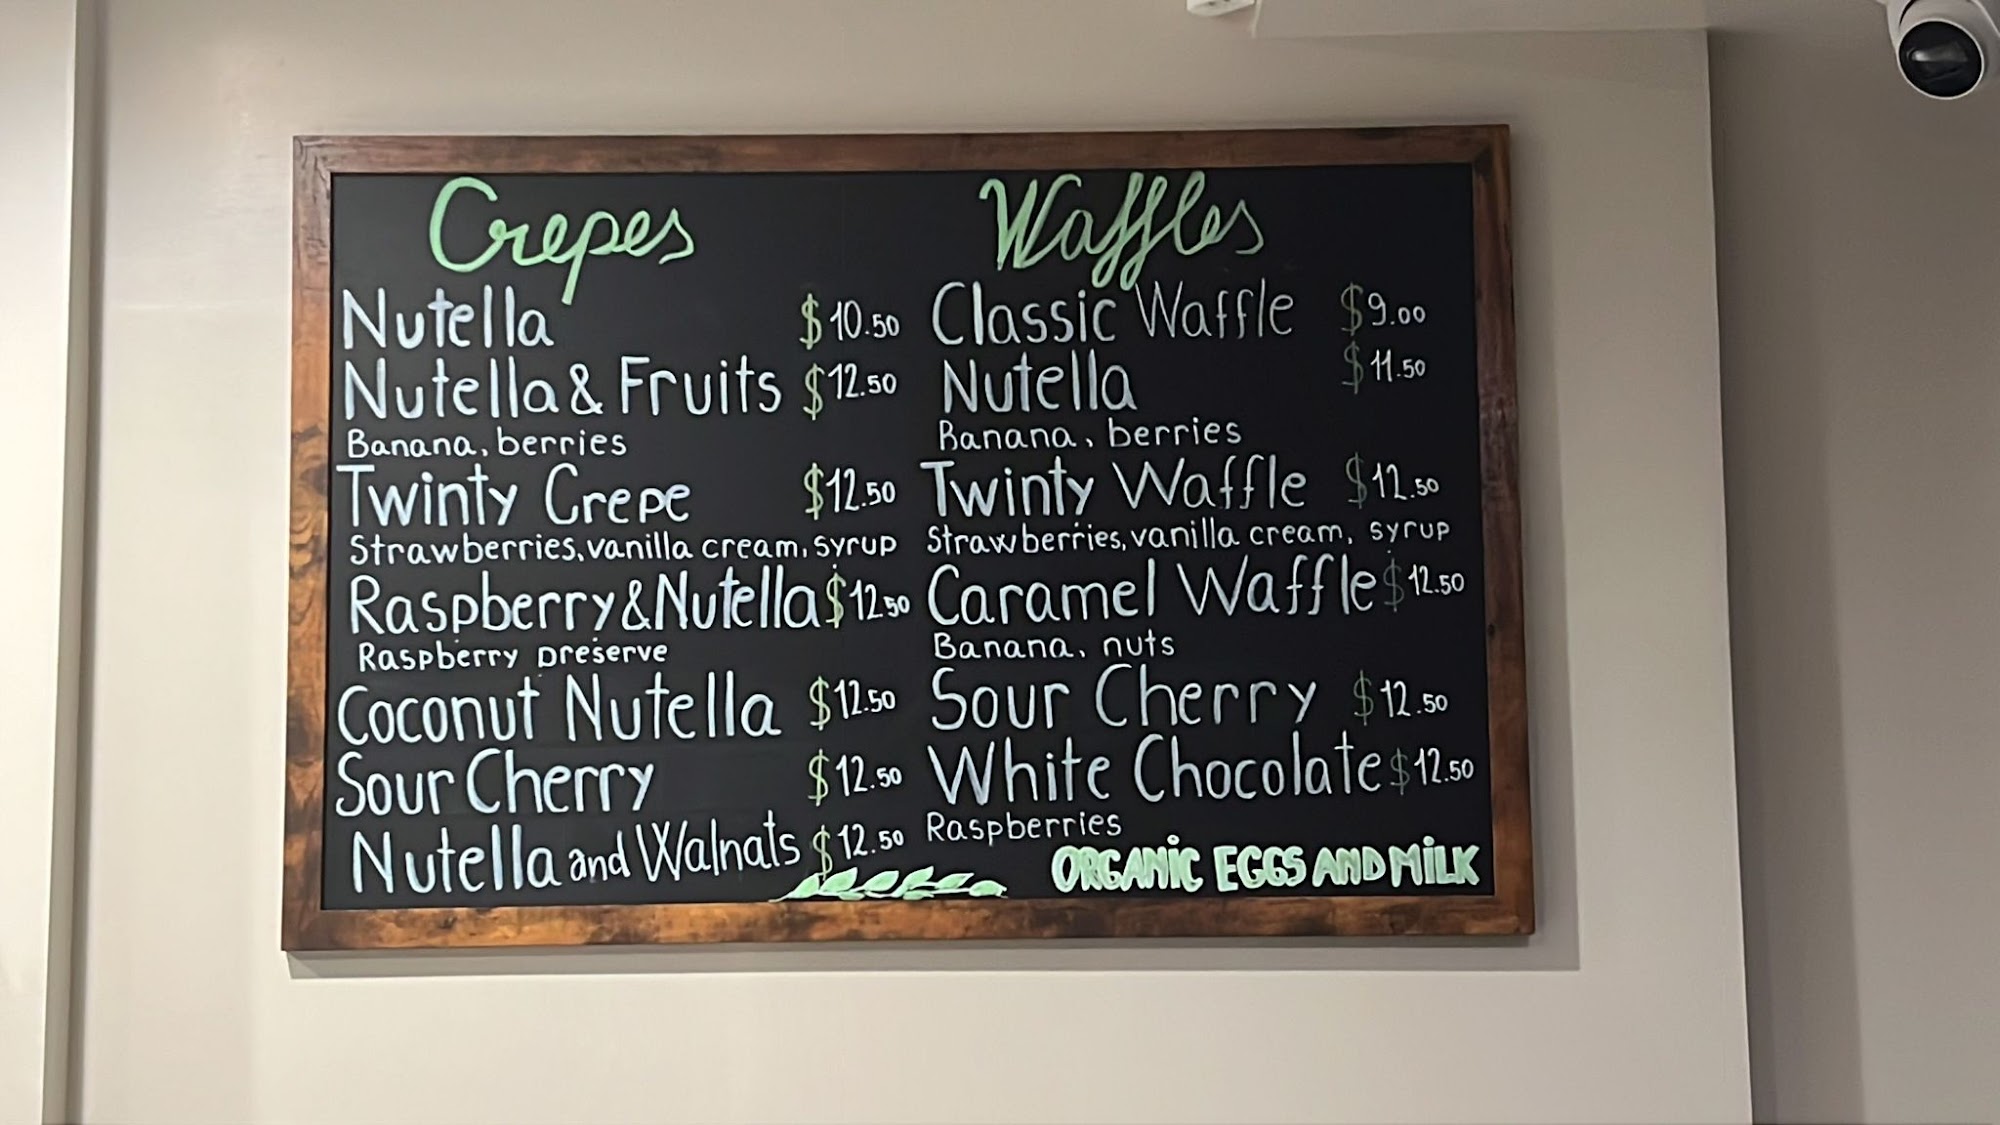 Crepes
Nutella $10.50
Nutella & Fruits $12.50
Banana, berries
Twinty Crepe $12.50
Strawberries, vanilla cream, syrup
Raspberry & Nutella $12.50
Raspberry preserve
Coconut Nutella $12.50
Sour Cherry $12.50
Nutella and Walnats $12.50
Waffles
Classic Waffle $9.00
Nutella $11.50
Banana, berries
Twinty Waffle $12.50
Strawberries, vanilla cream, syrup
Caramel Waffle $12.50
Banana, nuts
Sour Cherry $12.50
White Chocolate $12.50
Raspberries
ORGANIC EGGS AND MiLK